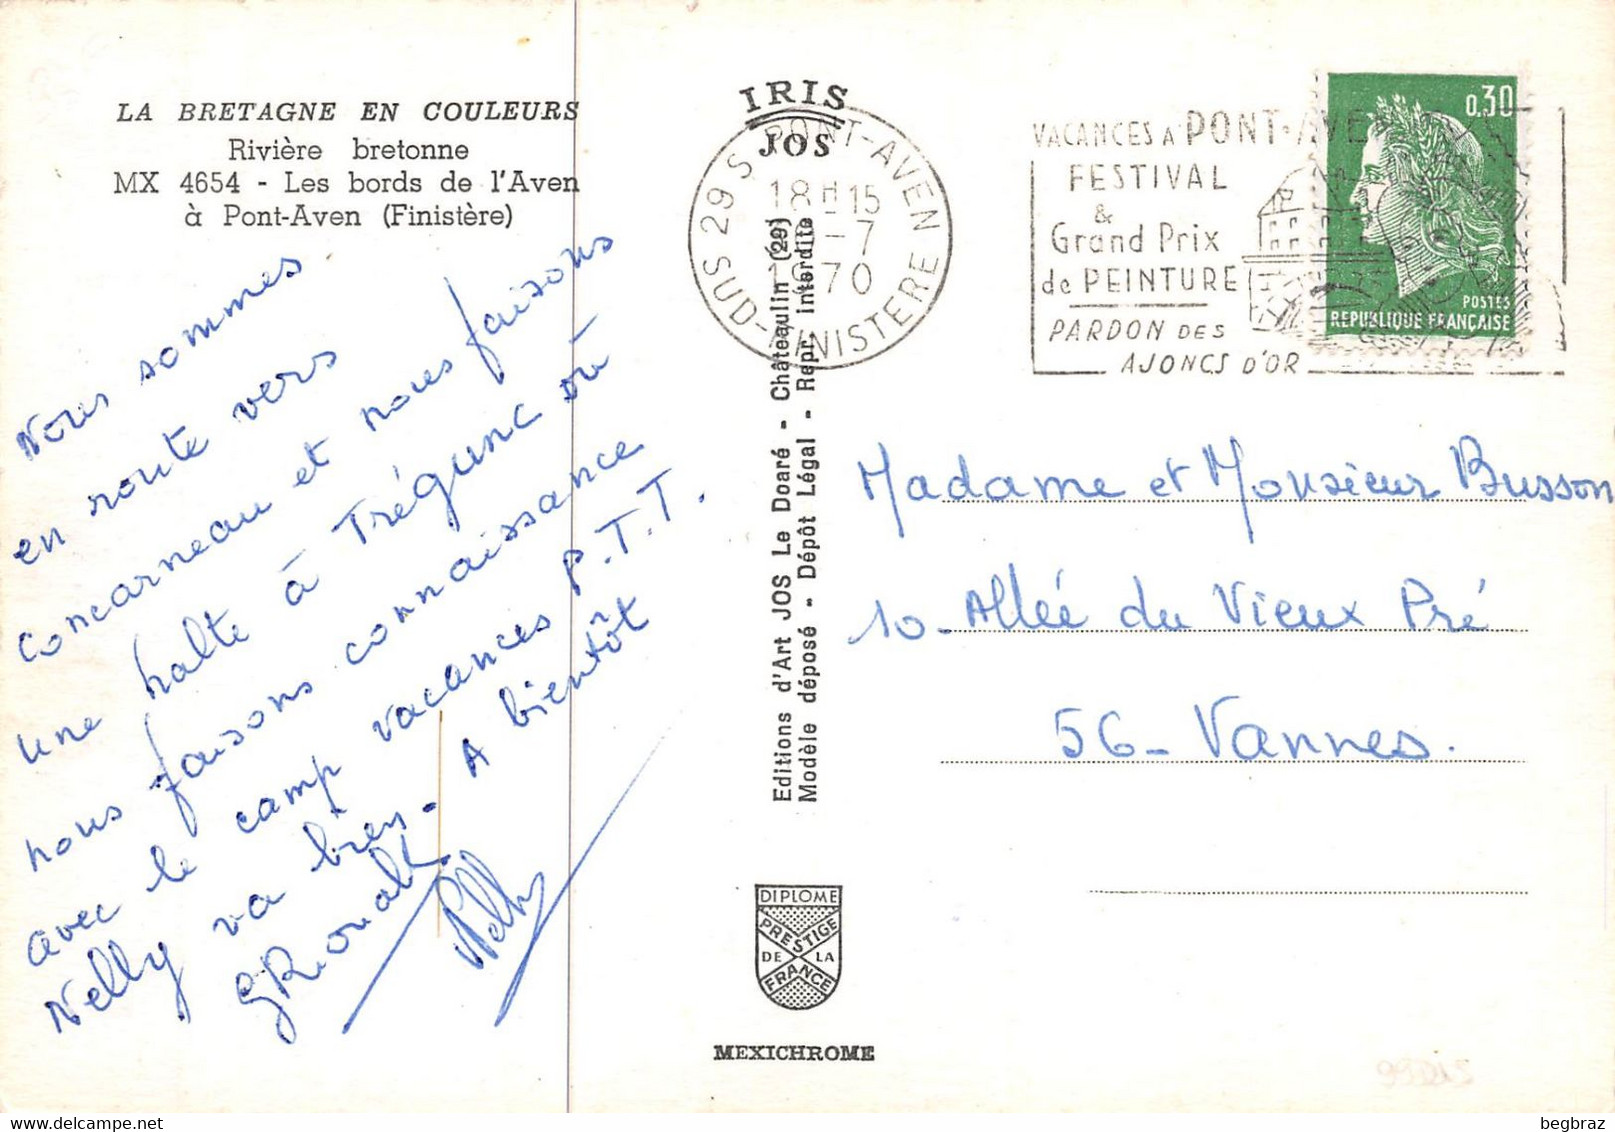 LA BRETAGNE EN COULEURS
Rivière bretonne
MX 4654 - Les bords de l'Aven
à Pont-Aven (Finistère)
Nous sommes
en route vers
Concarneau et nous faisons
une halte à Trégunc où
nous faisons connaissance
avec le camp vacances P.T.T.
Nelly va bien. A bientôt
Nelly
IRIS
JOS
29 S PONT-AVEN
18H15
-7
1970
SUD-FINISTERE
VACANCES A PONT-AVEN
FESTIVAL
&
Grand Prix
de PEINTURE
PARDON DES
AJONCS D'OR
0,30
POSTES
REPUBLIQUE FRANÇAISE
Editions d'Art JOS Le Doaré - Châteaulin (29)
Modèle déposé - Dépôt Légal - Repr. interdite
Madame et Monsieur Busson
10 - Allée du Vieux Pré
56 - Vannes.
DIPLOME
PRESTIGE
DE LA
FRANCE
MEXICHROME
begbraz